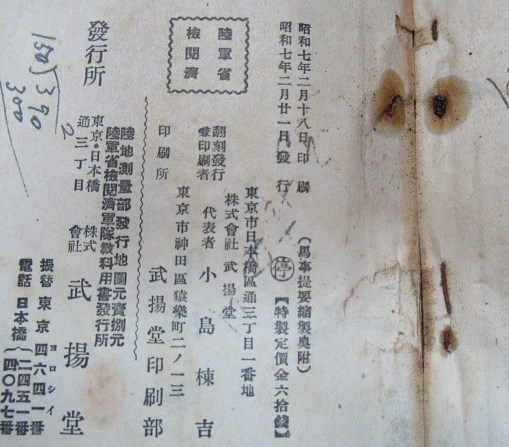 昭和七年二月十八日印刷
昭和七年二月廿一日發行
(馬事提要縮製奥附)
停
【特製定價金六拾錢】
陸軍省
檢閲濟
翻刻發行
兼印刷者
東京市日本橋區通三丁目一番地
株式會社武揚堂
代表者 小島棟吉
印刷所
東京市神田區猿樂町二ノ一三
武揚堂印刷部
陸地測量部發行地圖元賣捌元
陸軍省檢閲濟軍隊敎科用書發行所
發行所
東京・日本橋
通三丁目
株式
會社
武揚堂
振替東京四六四一番
ヨロシイ
電話日本橋
二四五一番
四〇九七番
150) 390
300
2